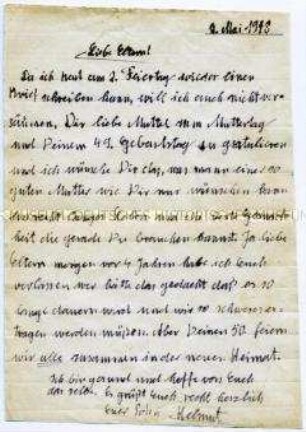 9. Mai 1943
Liebe Eltern!
Da ich heut am 2. Feiertag wieder einen
Brief schreiben kann, will ich auch nicht ver-
säumen, Dir liebe Muttel zum Muttertag
und Deinem 49. Geburtstag zu gratulieren
und ich wünsche Dir das, was man einer so
guten Mutter wie Dir nur wünschen kann
langes Leben und Gesund-
heit die gerade Du brauchen kannst. Ja liebe
Eltern morgen vor 4 Jahren habe ich Euch
verlassen wer hätte das gedacht daß es so
lange dauern wird und wir so schweres er-
tragen werden müßen. Aber Deinen 50. feiern
wir alle zusammen in der neuen Heimat.
Ich bin gesund und hoffe von Euch
das selbe. Es grüßt Euch recht herzlich
Euer Sohn Helmut